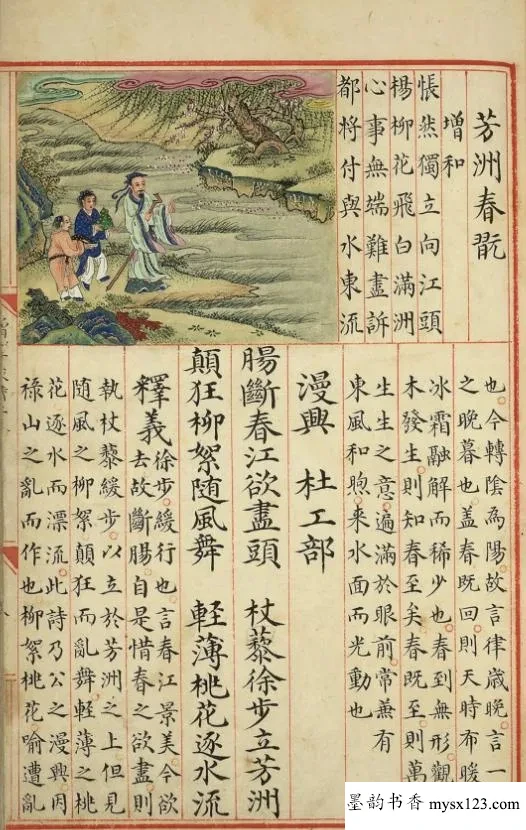 芳洲春翫
增和
悵然獨立向江頭
楊柳花飛白滿洲
心事無端難盡訴
都將付與水東流
也。今轉陰為陽。故言律歲晚。言一
之晚暮也。蓋春既回。則天時布暖
冰霜融解而稀少也。春到無形。觀
木發生。則知春至矣。春既至。則萬
生生之意。遍滿於眼前。常兼有
東風和煦。來水面而光動也
漫興 杜工部
腸斷春江欲盡頭 杖藜徐步立芳洲
顛狂柳絮随風舞 輕薄桃花逐水流
釋義 徐步。緩行也。言春江景美。今欲
去故斷腸。自是惜春之欲盡。則
執杖藜緩步。以立於芳洲之上。但見
随風之柳絮。顛狂而亂舞。輕薄之桃
花逐水而漂流。此詩乃公之漫興。因
祿山之亂而作也。柳絮桃花喻遭亂
墨韵书香 mysx123.com